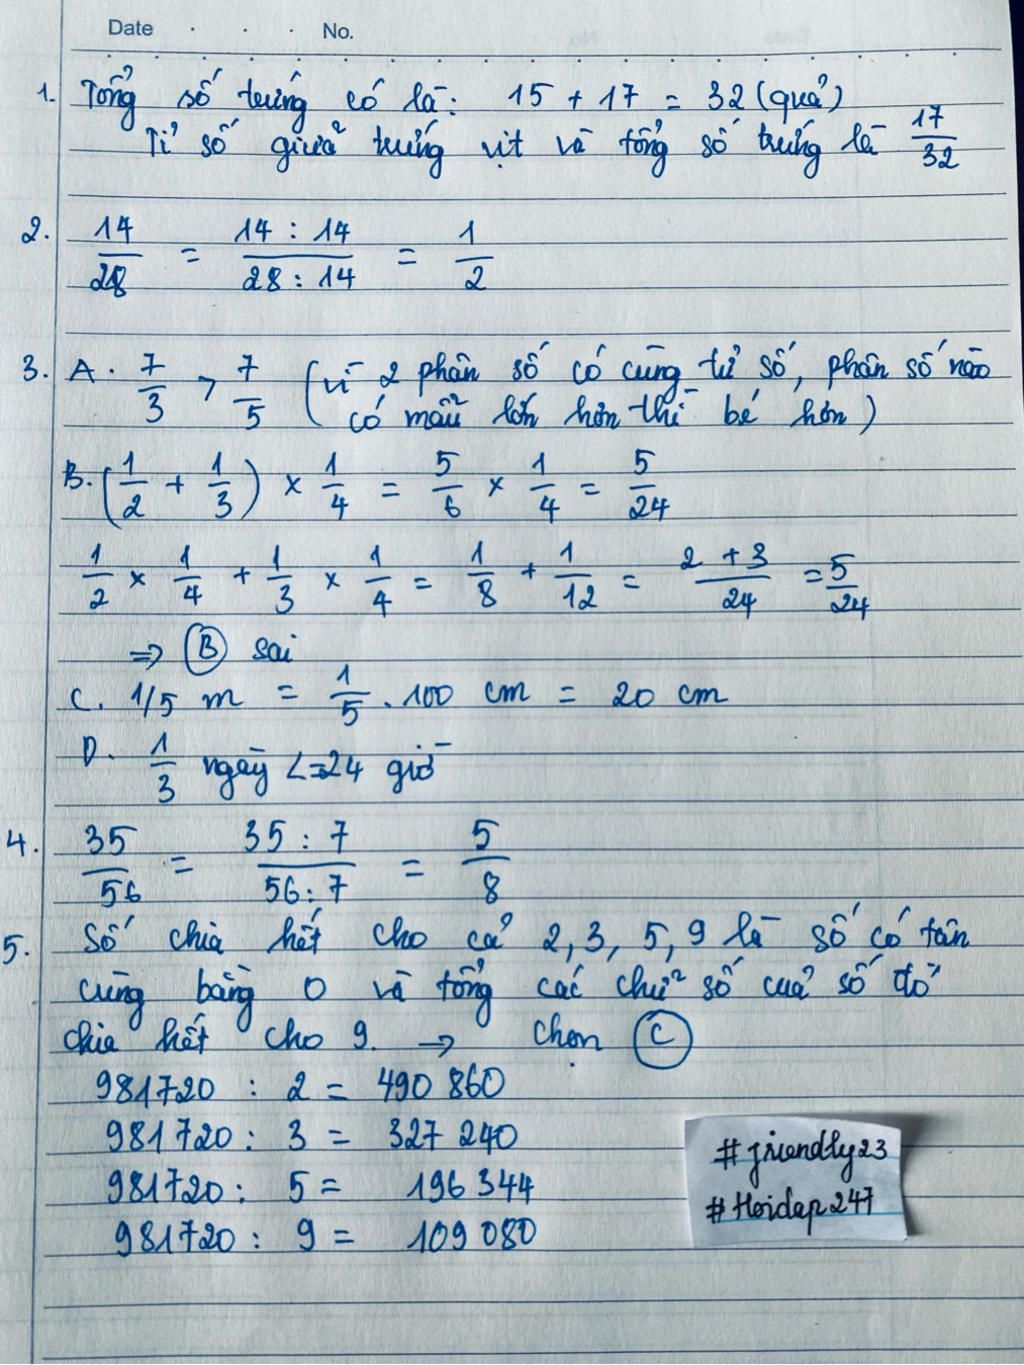 Date . . . No.
1. Tổng số trứng có là: 15 + 17 = 32 (quả)
Tỉ số giữa trứng vịt và tổng số trứng là 17/32
2. 14/28 = 14 : 14 / 28 : 14 = 1/2
3. A. 7/3 > 7/5 (vì 2 phân số có cùng tử số, phân số nào
có mẫu lớn hơn thì bé hơn)
B. (1/2 + 1/3) × 1/4 = 5/6 × 1/4 = 5/24
1/2 × 1/4 + 1/3 × 1/4 = 1/8 + 1/12 = 2 + 3 / 24 = 5/24
=> B sai
C. 1/5 m = 1/5 . 100 cm = 20 cm
D. 1/3 ngày 24 giờ
4. 35/56 = 35 : 7 / 56 : 7 = 5/8
5. Số chia hết cho cả 2, 3, 5, 9 là số có tân
cùng bằng 0 và tổng các chữ số của số đó
chia hết cho 9. → Chọn C
981720 : 2 = 490 860
981720 : 3 = 327 240
981720 : 5 = 196 344
981720 : 9 = 109 080
#friendly23
#Hoidap247